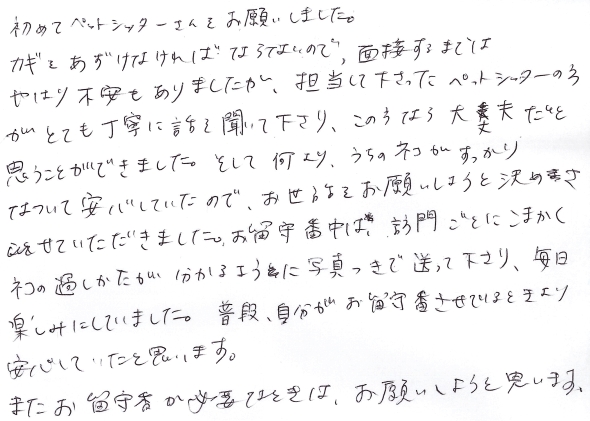 初めてペットシッターさんをお願いしました。
カギをあずけなければならないので、面接するまでは
やはり不安もありましたが、担当して下さったペットシッターの方
がとても丁寧に話を聞いて下さり、この方なら大丈夫だと
思うことができました。そして何より、うちのネコがすっかり
なついて安心していたので、お世話をお願いしようと決めさ
せていただきました。お留守番中は、訪門ごとにこまかく
ネコの過しかたが分かるように写真つきで送って下さり、毎日
楽しみにしていました。普段、自分がお留守番させているときより
安心していたと思います。
またお留守番が必要なときは、お願いしようと思います。